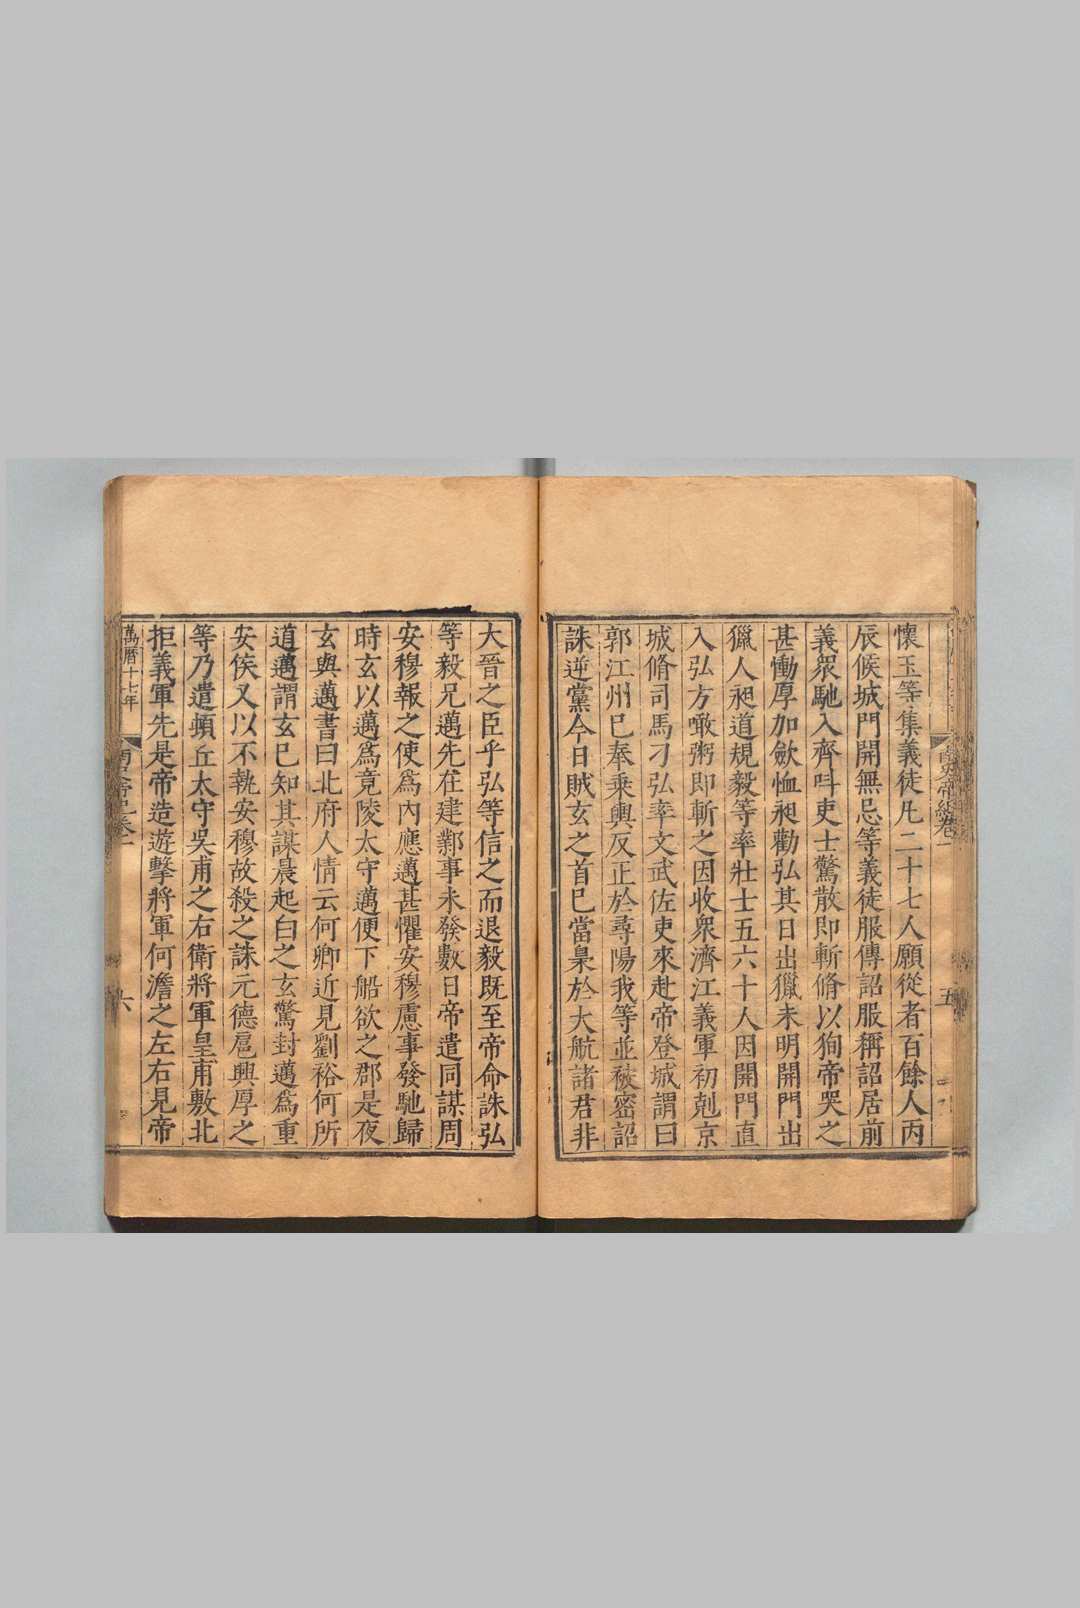 懷玉等集義徒凡二十七人願從者百餘人丙
辰候城門開無忌等義徒服傳詔服稱詔居前
義衆馳入齊呌吏士驚散即斬脩以狥帝哭之
甚慟厚加斂恤昶勸弘其日出獵未明開門出
獵人昶道規毅等率壯士五六十人因開門直
入弘方噉粥即斬之因收衆濟江義軍初剋京
城脩司馬刁弘率文武佐吏來赴帝登城謂曰
郭江州已奉乗輿反正於尋陽我等並被密詔
誅逆黨今日賊玄之首已當梟於大航諸君非
南史帝紀卷一
五
大晉之臣乎弘等信之而退毅既至帝命誅弘
等毅兄邁先在建鄴事未發數日帝遣同謀周
安穆報之使爲內應邁甚懼安穆慮事發馳歸
時玄以邁爲竟陵太守邁便下船欲之郡是夜
玄與邁書曰北府人情云何卿近見劉裕何所
道邁謂玄已知其謀晨起白之玄驚封邁爲重
安侯又以不執安穆故殺之誅元德扈興厚之
等乃遣頓丘太守吳甫之右衛將軍皇甫敷北
拒義軍先是帝造遊擊將軍何澹之左右見帝
萬曆十七年
南史帝紀卷一
六